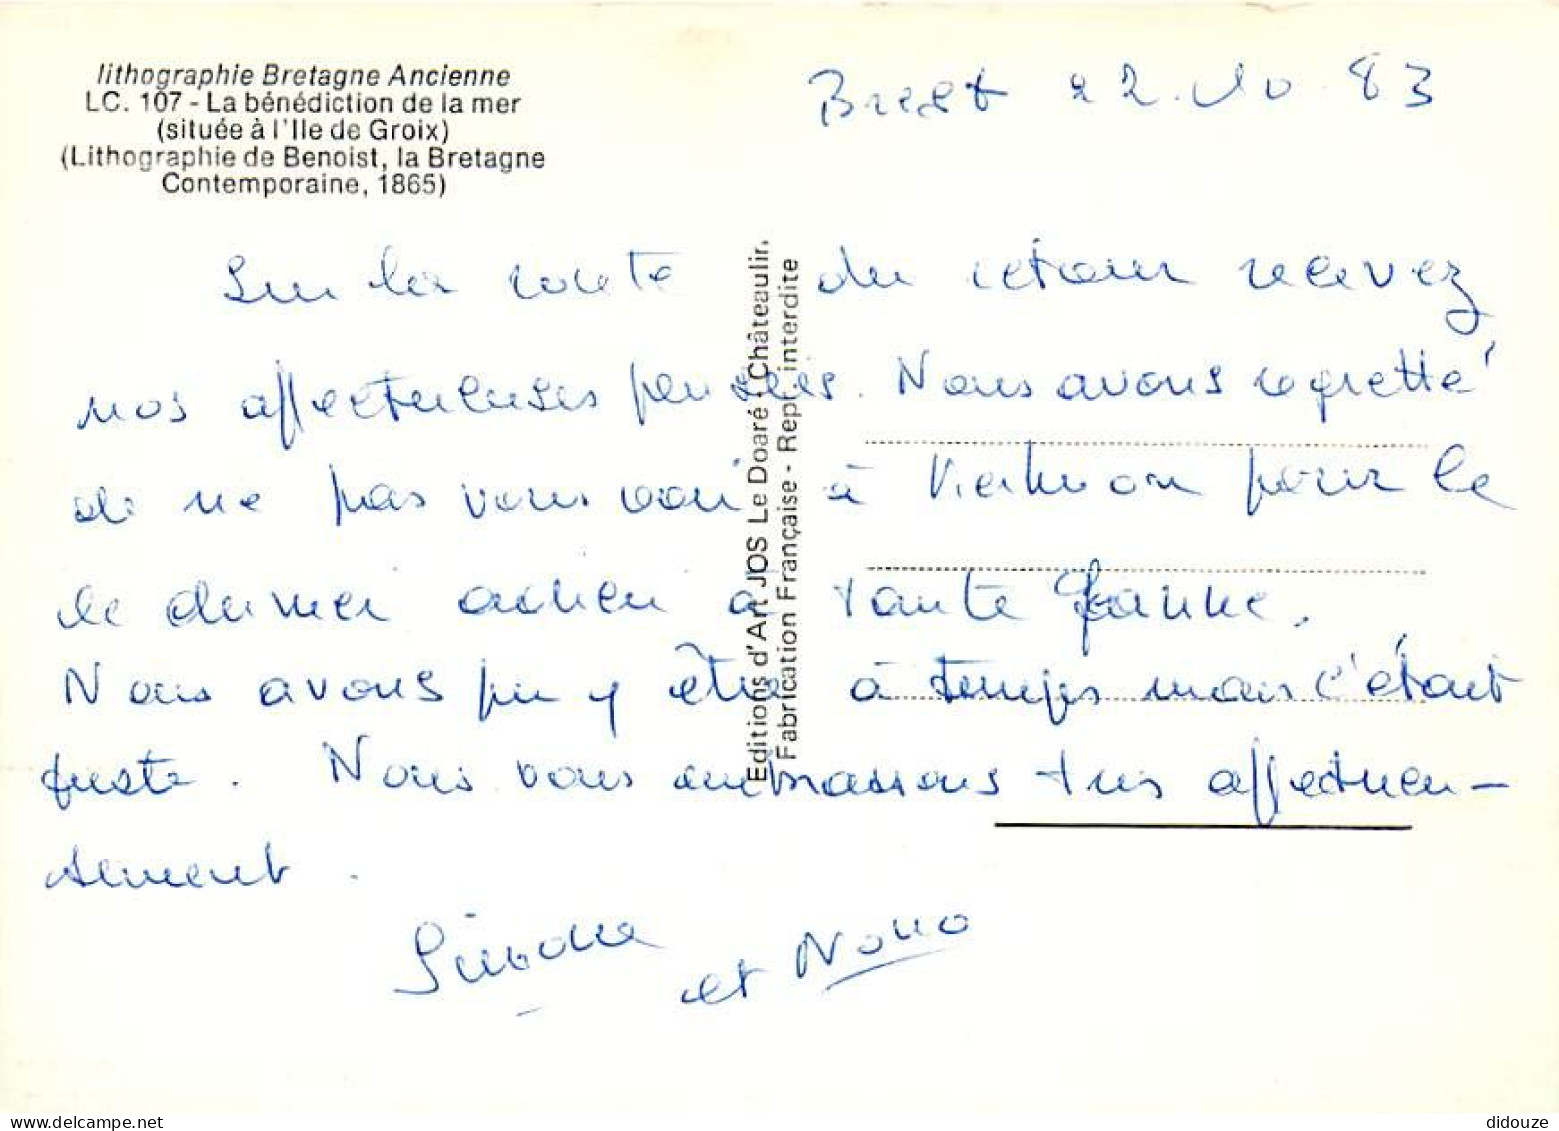 lithographie Bretagne Ancienne
LC. 107 - La bénédiction de la mer
(située à l'Ile de Groix)
(Lithographie de Benoist, la Bretagne
Contemporaine, 1865)
Brest 22.10.83
Sur la route du retour recevez
nos affectueuses pensées. Nous avons regretté
de ne pas vous voir à Vierhon pour le
le dernier adieu à tante Jeanne.
Nous avons pu y être à temps mais c'était
juste. Nous vous embrassons très affectueu-
sement.
Simone
et Nono
Editions d'Art JOS Le Doaré - Châteaulin.
Fabrication Française - Repr. interdite
didouze